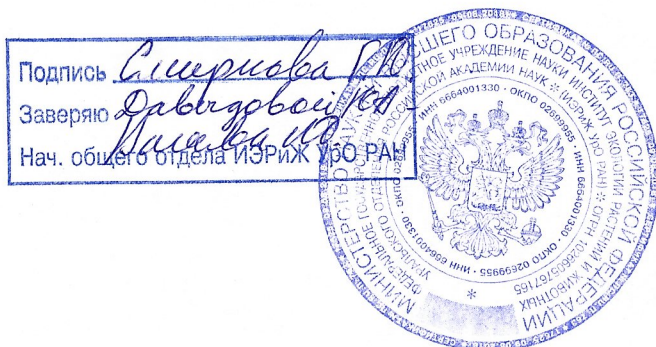 Подпись Смирнова
Заверяю Давыдовой
Нач. общего отдела ИЭРиЖ УрО РАН
МИНИСТЕРСТВО НАУКИ ВЫСШЕГО ОБРАЗОВАНИЯ РОССИЙСКОЙ ФЕДЕРАЦИИ
ФЕДЕРАЛЬНОЕ ГОСУДАРСТВЕННОЕ УЧРЕЖДЕНИЕ НАУКИ ИНСТИТУТ ЭКОЛОГИИ РАСТЕНИЙ И ЖИВОТНЫХ
УРАЛЬСКОГО ОТДЕЛЕНИЯ РОССИЙСКОЙ АКАДЕМИИ НАУК * (ИЭРиЖ УрО РАН) * ОГРН 1026605767165
ИНН 6664001330 · ОКПО 02699955 · ИНН 6664001330 · ОКПО 02699955 · ИНН 6664001330 · ОКПО 02699955